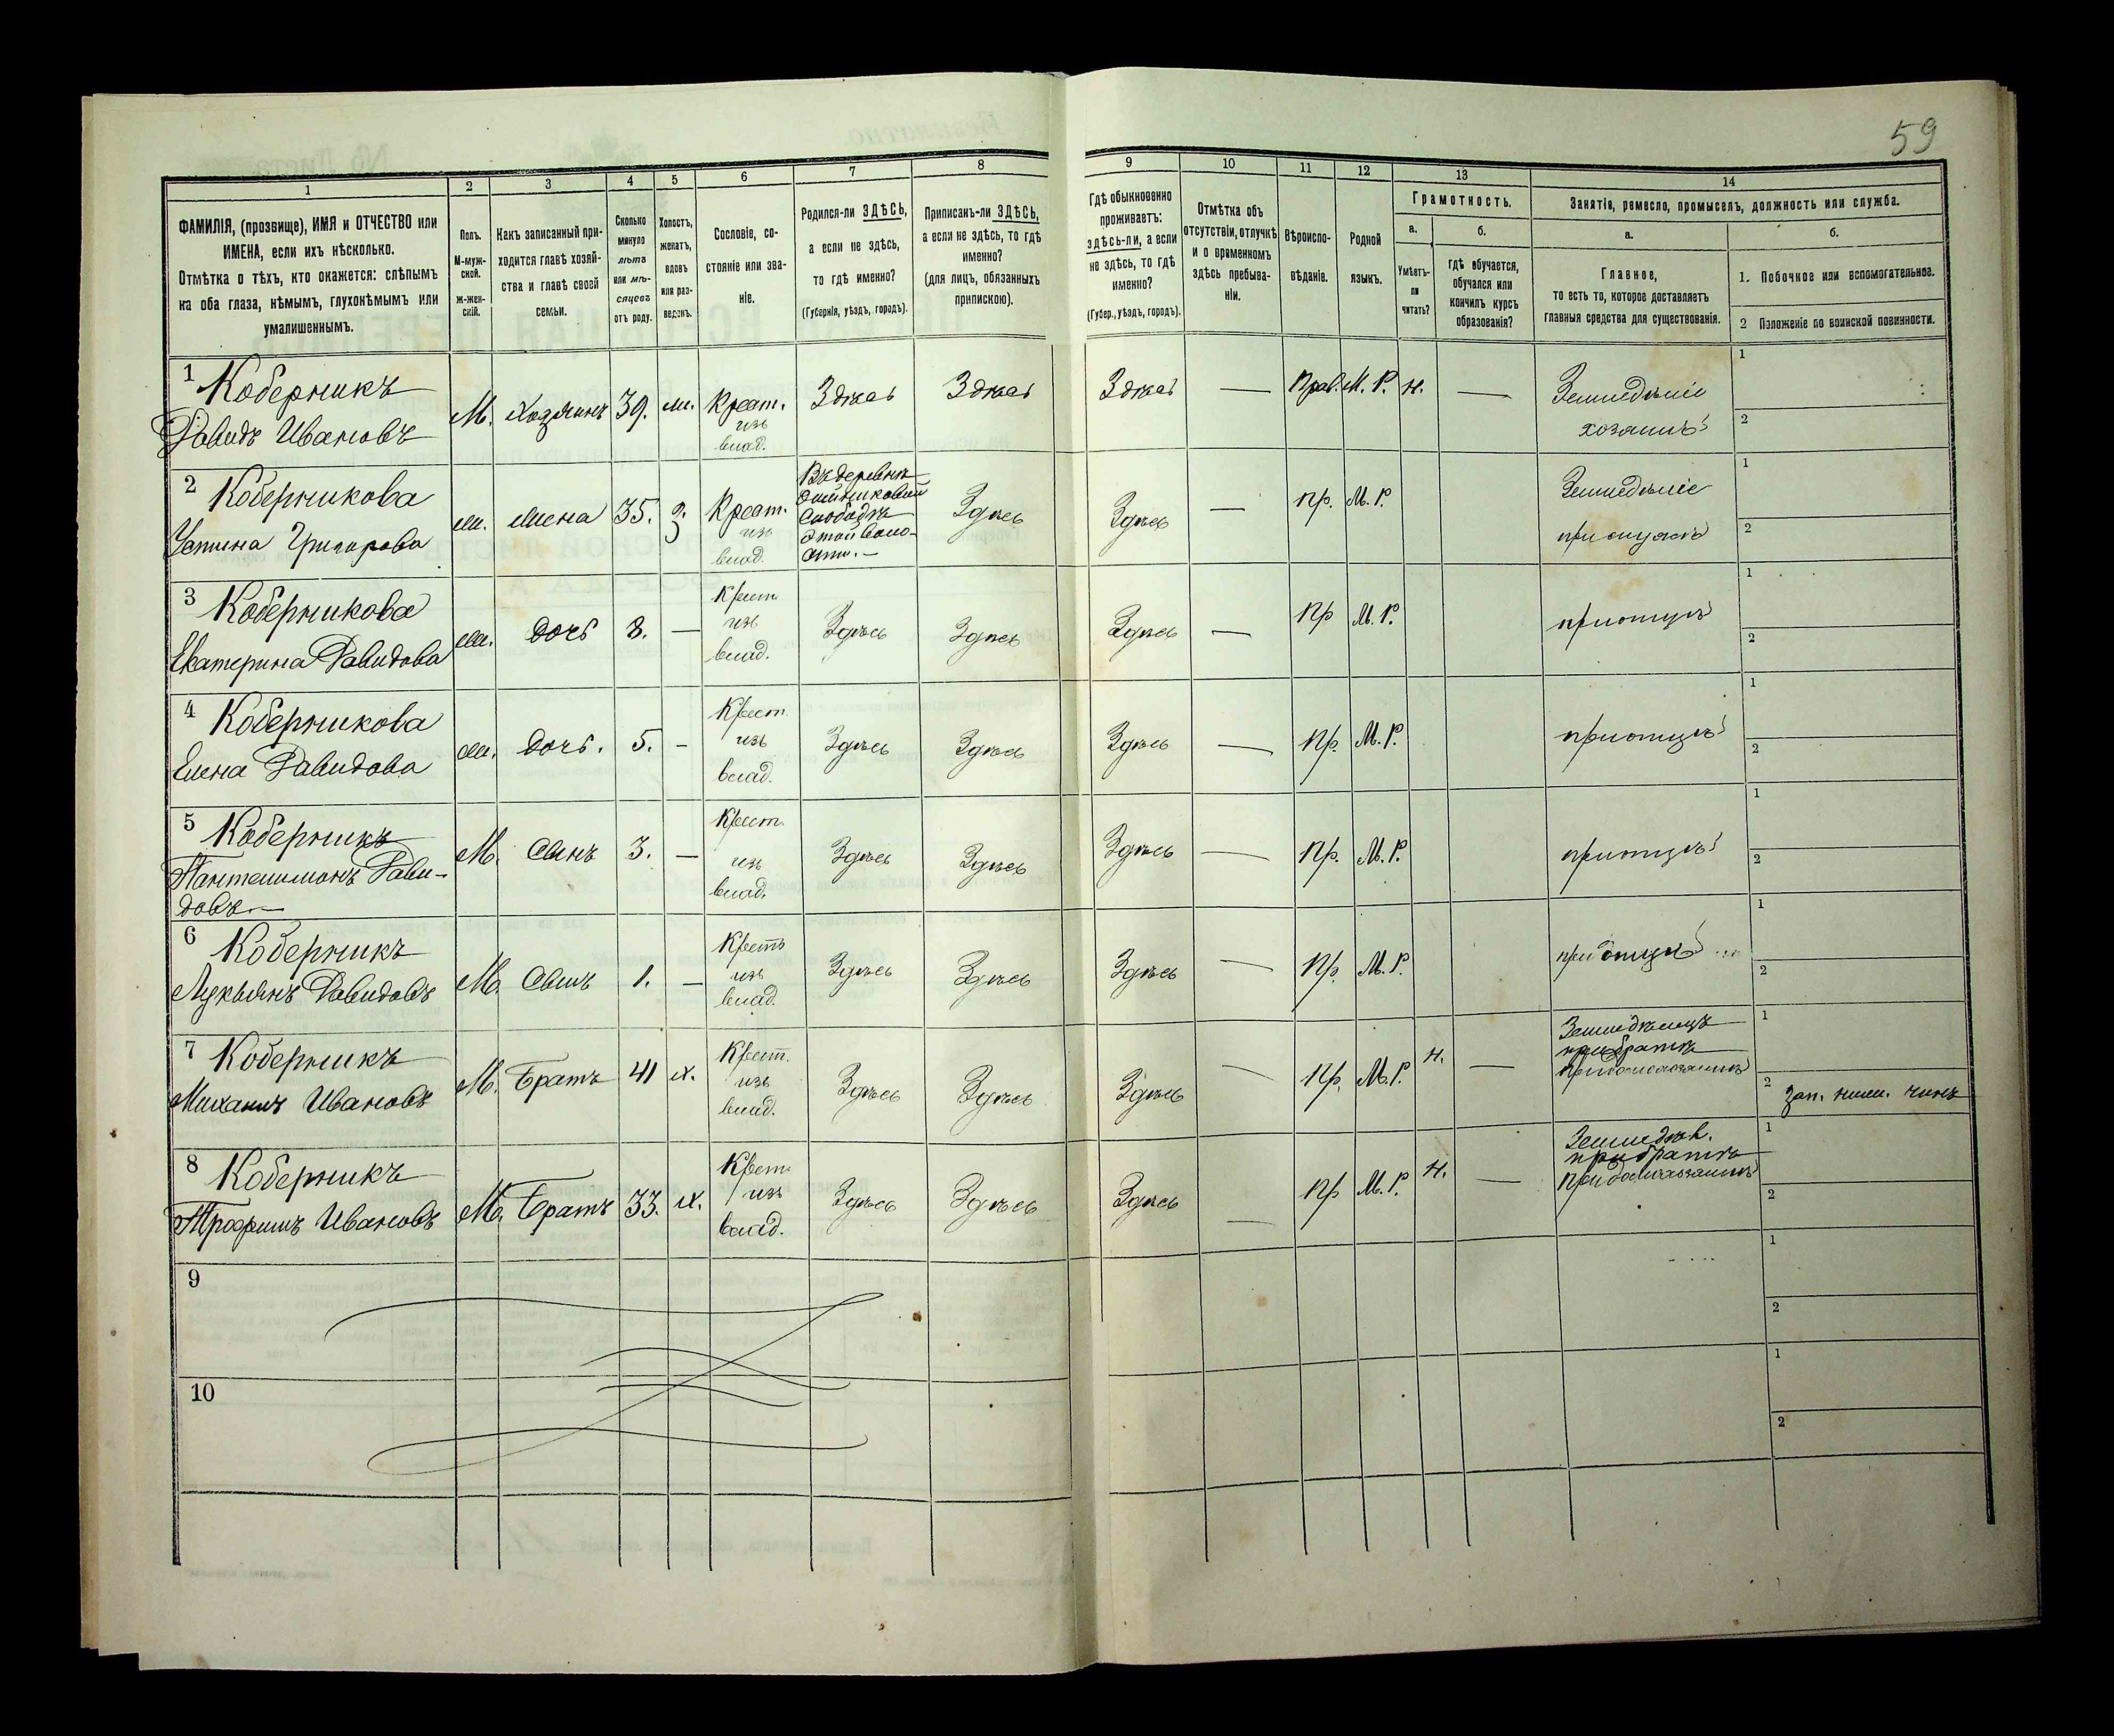 59
1
2
3
4
5
6
7
8
9
10
11
12
13
14
ФАМИЛІЯ, (прозвище), ИМЯ и ОТЧЕСТВО или
ИМЕНА, если ихъ нѣсколько.
Отмѣтка о тѣхъ, кто окажется: слѣпымъ
на оба глаза, нѣмымъ, глухонѣмымъ или
умалишеннымъ.
Полъ.
М-муж-
ской.
ж-жен-
скій.
Какъ записанный при-
ходится главѣ хозяй-
ства и главѣ своей
семьи.
Сколько
минуло
лѣтъ
или мѣ-
сяцевъ
отъ роду.
Холостъ,
женатъ,
вдовъ
или раз-
веденъ.
Сословіе, со-
стояніе или зва-
ніе.
Родился-ли ЗДѢСЬ,
а если не здѣсь,
то гдѣ именно?
(Губернія, уѣздъ, городъ).
Приписанъ-ли ЗДѢСЬ,
а если не здѣсь, то гдѣ
именно?
(для лицъ, обязанныхъ
припискою).
Гдѣ обыкновенно
проживаетъ:
здѣсь-ли, а если
не здѣсь, то гдѣ
именно?
(Губер., уѣздъ, городъ).
Отмѣтка объ
отсутствіи, отлучкѣ
и о временномъ
здѣсь пребыва-
ніи.
Вѣроиспо-
вѣданіе.
Родной
языкъ.
Грамотность.
а.
Умѣетъ-
ли
читать?
б.
Гдѣ обучается,
обучался или
кончилъ курсъ
образованія?
Занятіе, ремесло, промыселъ, должность или служба.
а.
Главное,
то есть то, которое доставляетъ
главныя средства для существованія.
б.
1. Побочное или вспомогательное.
2 Положеніе по воинской повинности.
1 Коберникъ
Давидъ Ивановъ
М. Хозяинъ 39. ж. Крест.
изъ
влад.
Здѣсь Здѣсь Здѣсь — Прав. М. Р. н. —
Земледѣліе
хозяинъ
1
2
2 Коберникова
Устина Григорова
ж. жена 35. з. Крест.
изъ
влад.
Въ деревнѣ
Слободкѣ
этой воло-
сти. —
Здѣсь Здѣсь — Пр. М. Р.
Земледѣліе
1
2
3 Коберникова
Екатерина Давидова
ж. дочь 8. — Крест.
изъ
влад.
Здѣсь Здѣсь Здѣсь — Пр М. Р.
при отцѣ
1
2
4 Коберникова
Елена Давидова
ж. дочь. 5. - Крест.
изъ
влад.
Здѣсь Здѣсь Здѣсь — Пр. М. Р.
при отцѣ
1
2
5 Коберникъ
Пантелимонъ Дави-
довъ —
М. Сынъ 3. — Крест.
изъ
влад.
Здѣсь Здѣсь Здѣсь — Пр. М. Р.
при отцѣ
1
2
6 Коберникъ
Лукьянъ Давидовъ
М. Сынъ 1. — Крестъ
изъ
влад.
Здѣсь Здѣсь Здѣсь — Пр. М. Р.
при отцѣ
1
2
7 Коберникъ
Михаилъ Ивановъ
М. Братъ 41 х. Крест.
изъ
влад.
Здѣсь Здѣсь Здѣсь — Пр. М. Р. н. —
Земледѣлецъ
при братѣ
1
2
Зап. ниж. чинъ
8 Коберникъ
Трофимъ Ивановъ
М. Братъ 33. х. Крест.
изъ
влад.
Здѣсь Здѣсь Здѣсь — Пр М. Р. н. —
Земледѣл.
при братѣ
1
2
9
1
2
10
1
2